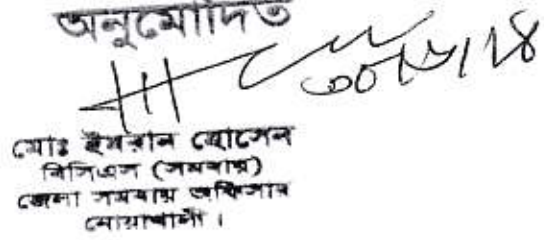 অনুমোদিত
মোঃ ইমরান হোসেন
বিসিএস (সমবায়)
জেলা সমবায় অফিসার
নোয়াখালী।